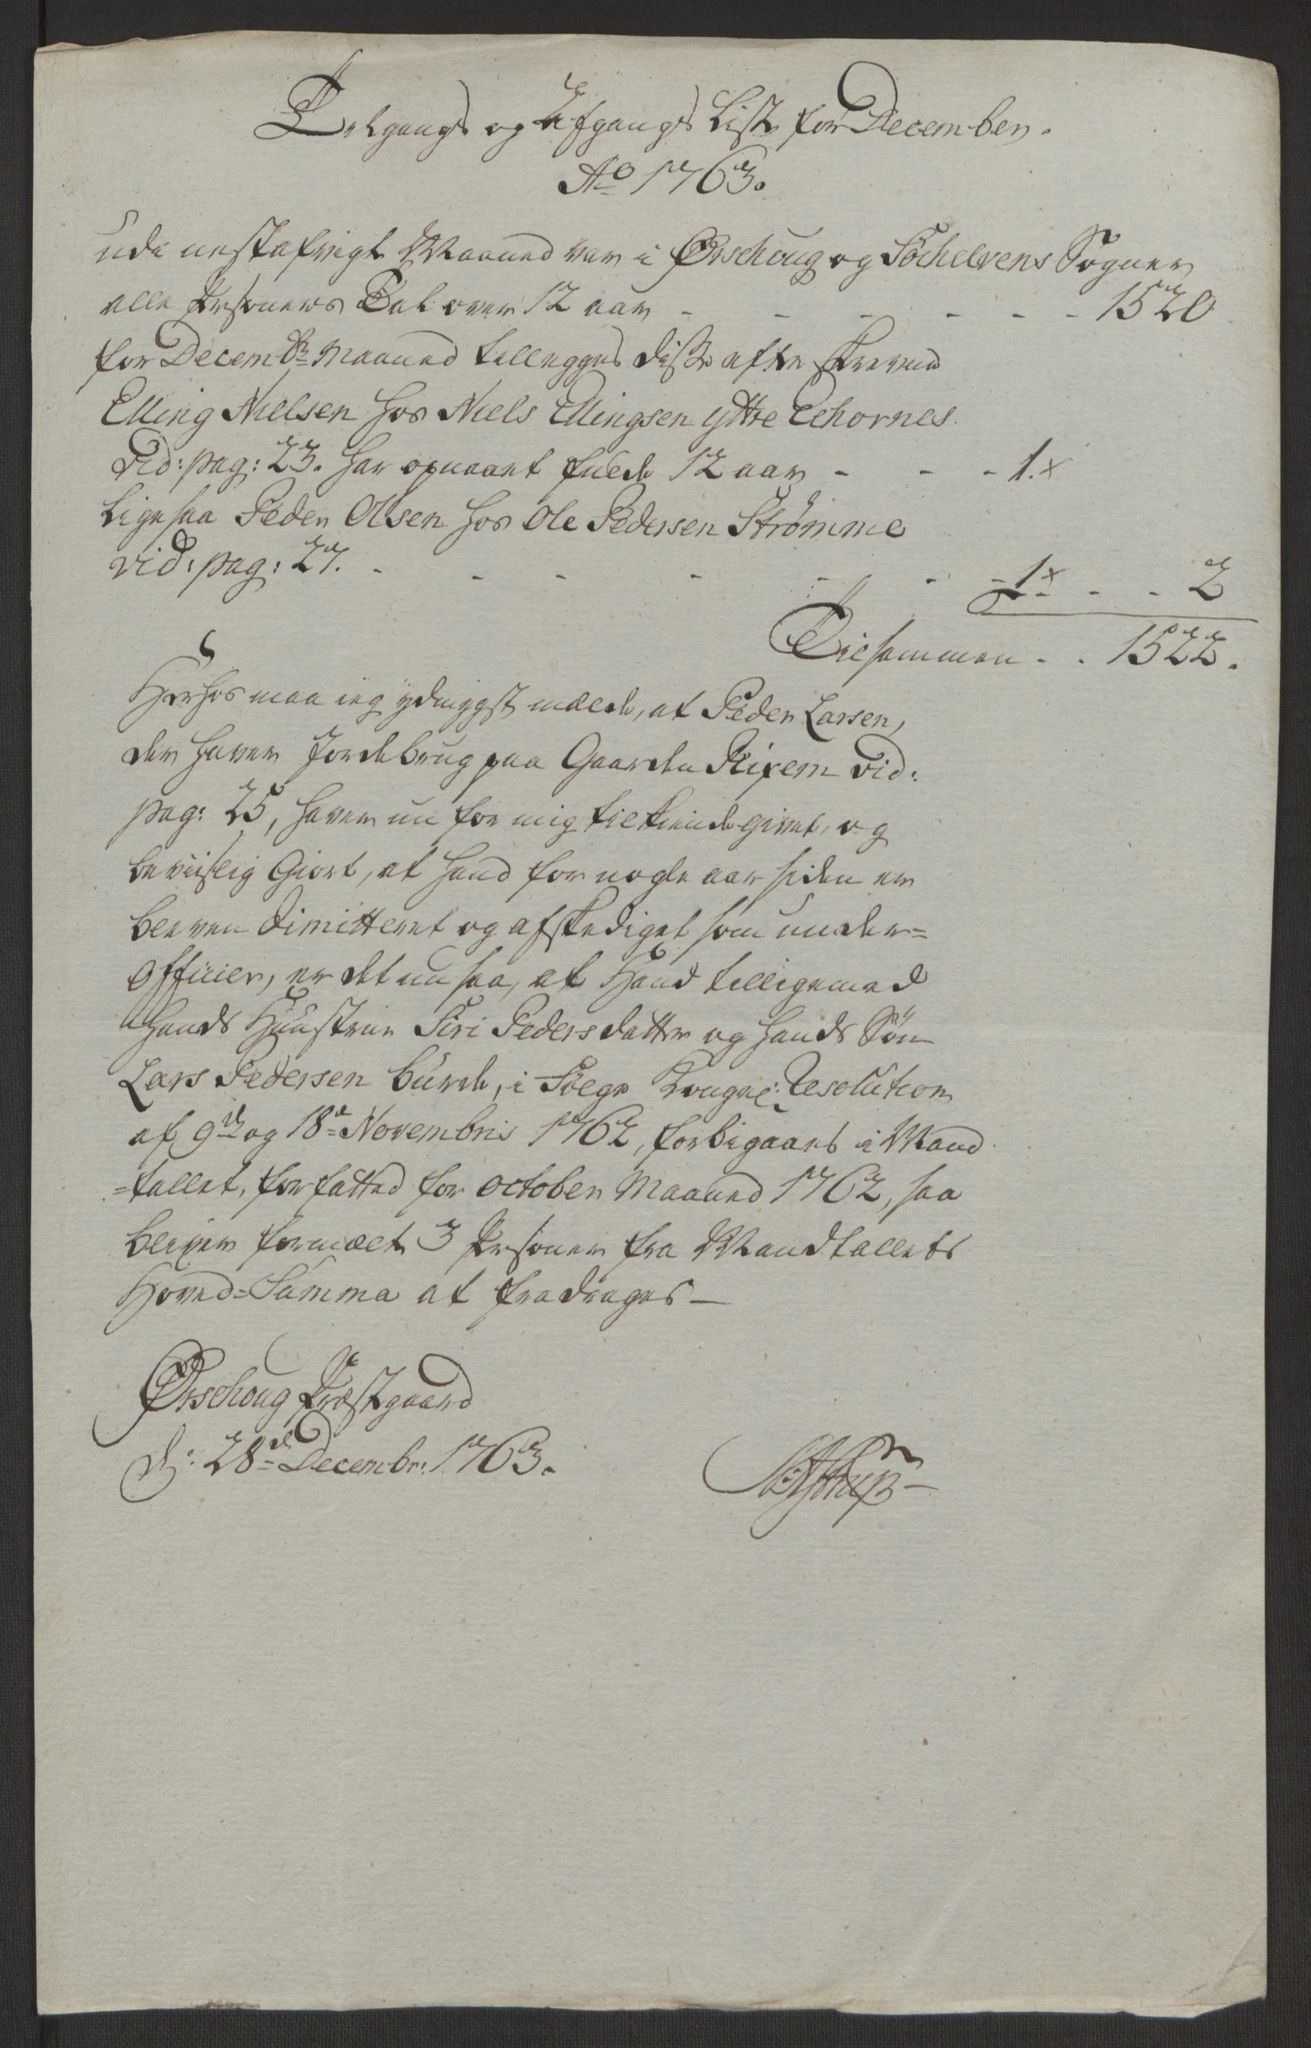 Tilgangs og Afgangs List for December.
Ao 1763.
Udi nestafvigte Maaned var i Ørschoug og Söchelvens Sogner
alle Persohners Tal over 12 aar - - - - - - 1520
for Decembr Maaned tillegges disse efterskrevne
Elling Nielsen hos Niels Ellingsen Yttre Echornes.
vid: pag: 23. har opnaaet fulde 12 aar - - - 1.x
Ligesaa Peder Olsen hos Ole Pedersen Strømme
vid: pag: 27. - - - - - - 1x - - 2
Tilsammen - - 1522.
Herhos maa ieg ydmygst melde, at Peder Larsen,
der haver Jordebrug paa Gaarden Rixem vid:
pag: 25, haver nu for mig tilkiendegivet, og
beviislig Giort, at hand for nogle aar siden er
bleven dimitteret og afskediget som under=
Officier, er det nu saa, at Hand tilligemed
hands Hustrue Siri Pedersdatter og hands Søn
Lars Pedersen burde, i Følge Kongel: Resolution
af 9de og 18de Novembris 1762, forbigaaes i Mand
=tallet, forfattet for October Maaned 1762, saa
bliver formelte 3 Persohner fra Mandtallets
Hoved=Summa at fradrages —
Ørschoug Præstgaard
d: 28de Decembr: 1763.